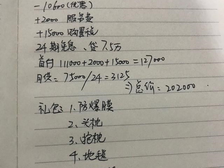 -10600(优惠)
+2000 服务费
+15000 购置税
24期免息、贷7.5万
首付 111000+2000+15000=127000
月供:75000/24=3125
⇒总价:202000
礼包:1.防爆膜
2、头枕
3、抱枕
4、地毯